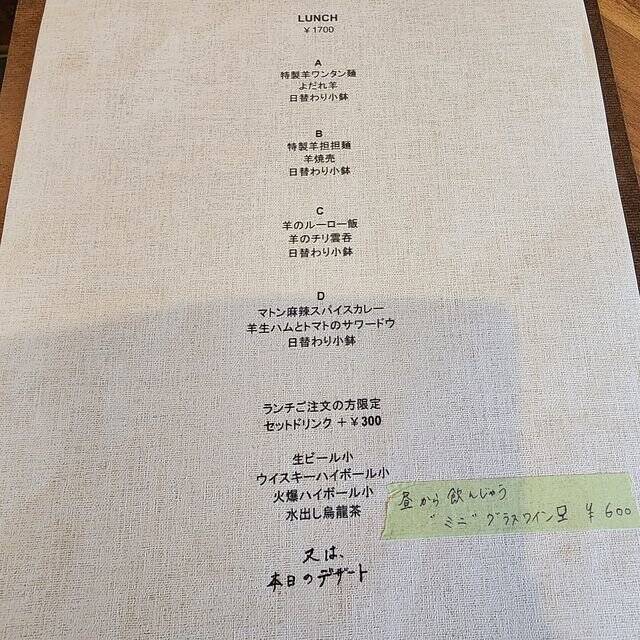 LUNCH
¥1700
A
特製羊ワンタン麺
よだれ羊
日替わり小鉢
B
特製羊担担麺
羊焼売
日替わり小鉢
C
羊のルーロー飯
羊のチリ雲呑
日替わり小鉢
D
マトン麻辣スパイスカレー
羊生ハムとトマトのサワードウ
日替わり小鉢
ランチご注文の方限定
セットドリンク ＋¥300
生ビール小
ウイスキーハイボール小
火爆ハイボール小
水出し烏龍茶
又は、
本日のデザート
昼から飲んじゃう
"ミニ"グラスワイン ¥600